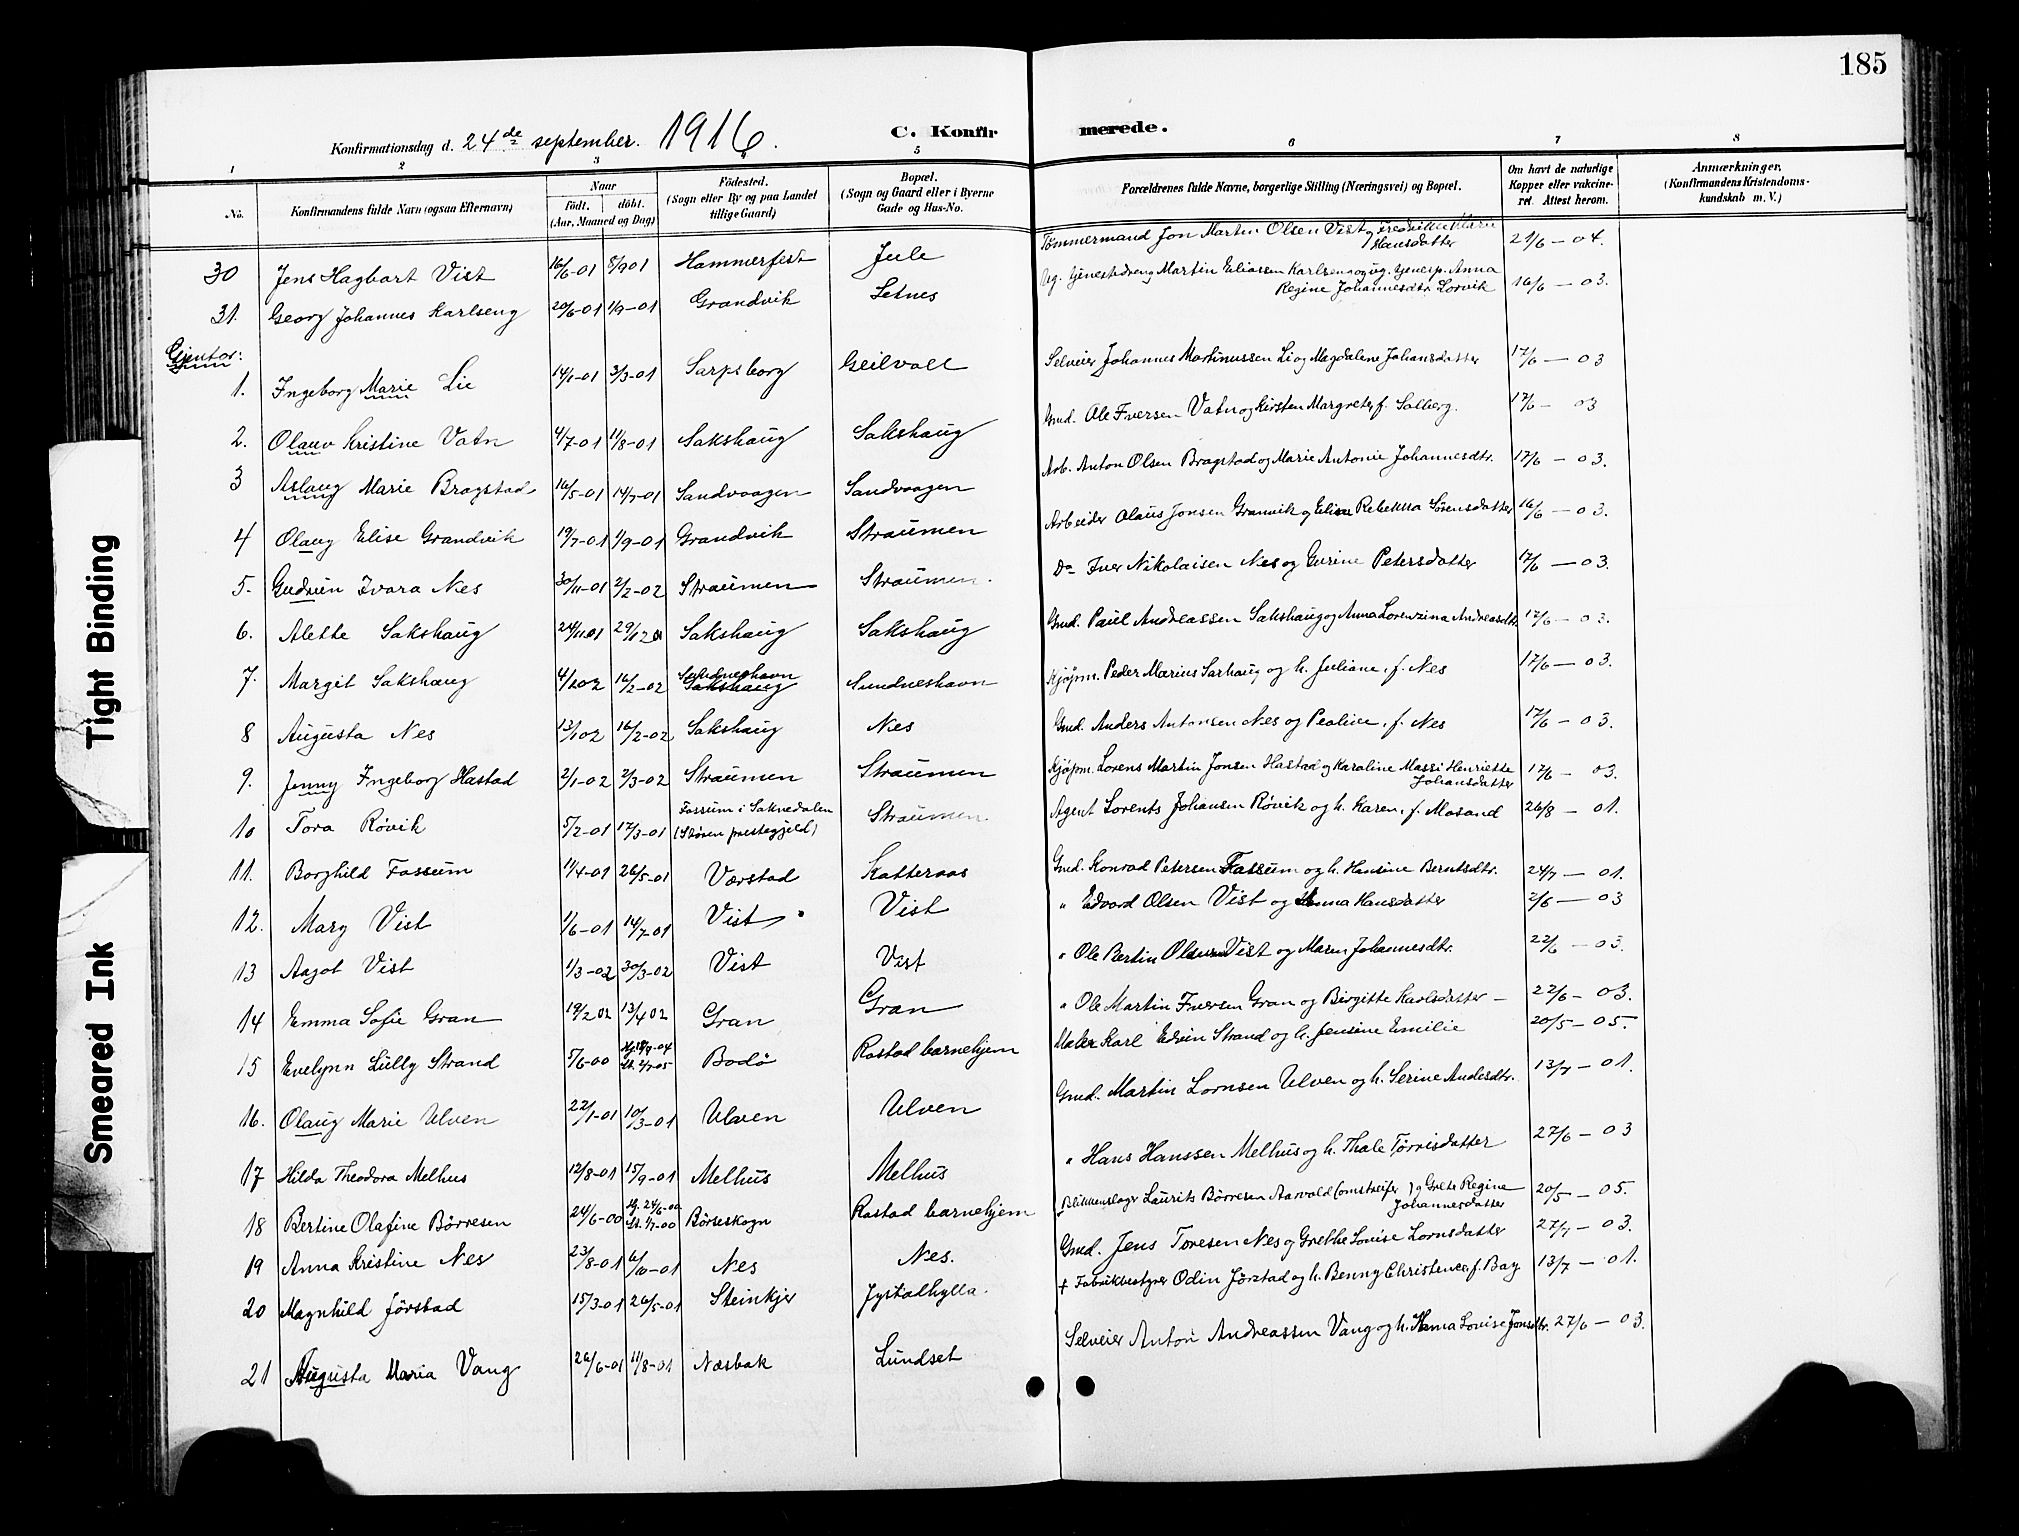 185
C. Konfir merede.
Konfirmationsdag d. 24de september. 1916.
1 2 3 4 5 6 7 8
No.
Konfirmandens fulde Navn (ogsaa Efternavn)
Naar
födt. döbt.
(Aar, Maaned og Dag)
Födested.
(Sogn eller By og paa Landet
tillige Gaard)
Bopæl.
(Sogn og Gaard eller i Byerne
Gade og Hus-No.
Forældrenes fulde Navne, borgerlige Stilling (Næringsvei) og Bopæl.
Om havt de naturlige
Kopper eller vakcine-
ret. Attest herom.
Anmærkninger.
(Konfirmandens Kristendoms-
kundskab m. V.)
30 Jens Hagbart Vist 16/6-01 8/9 01 Hammerfest Jule Tømmermand Jon Martin Olsen Vist og Fredrikke Marie Hansdatter 21/6-04.
31. Georg Johannes Karlseng 20/6-01 1/9-01 Grandvik Letnes Ug. tjenestedreng Martin Eliassen Karlseng og ug. tjenesp. Anna Regine Johannesdtr. Lorvik 16/6-03.
Gjentor:
1. Ingeborg Marie Lie 14/1-01 3/3-01 Sarpsborg Geilvoll Selveier Johannes Martinussen Li og Magdalene Johansdatter 17/6-03
2. Olauv Kristine Vatn 4/7-01 11/8-01 Sakshaug Sakshaug Gmd. Ole Iversen Vatn og Kirsten Margrete f. Salberg. 17/6-03
3 Aslaug Marie Bragstad 16/5-01 14/7-01 Sandvaagen Sandvaagen Arb. Anton Olsen Bragstad og Marie Antonie Johannesdtr. 17/6-03.
4 Olaug Elise Grandvik 19/7-01 1/9-01 Grandvik Straumen Arbeider Olaus Jonsen Granvik og Elise Rebekka Sørensdatter 16/6-03.
5. Gudrun Ivara Nes 30/11-01 2/2-02 Straumen Straumen. Do Iver Nikolaisen Nes og Gurine Petersdatter 17/6-03.
6. Alette Sakshaug 24/11 01 29/12 01 Sakshaug Sakshaug Gmd. Paul Andreassen Sakshaug og Anna Lorenzina Andreasdtr. 17/6-03.
7. Margit Sakshaug 4/1 02 16/2-02 Sundneshavn Sakshaug Sundneshavn Kjøpm. Peder Marius Sarhaug og h. Juliane, f. Nes 17/6-03.
8 Augusta Nes 13/1 02 16/2-02 Sakshaug Nes Gmd. Anders Antonsen Nes og Pauline, f. Nes 17/6-03.
9. Jenny Ingeborg Hastad 2/1-02 2/3-02 Straumen Straumen Kjøpm. Lorens Martin Jonsen Hastad og Karoline Massi Henriette Johansdatter 17/6-03.
10 Tora Røvik 5/2-01 17/3-01 Fossum i Soknedalen (Støren prestegjeld) Straumen. Agent Lorents Johansen Røvik og h. Karen, f. Mosand 26/8-01.
11. Borghild Fossum 11/4-01 26/5-01 Værstad Katteraas Gmd. Konrad Petersen Fossum og h. Hansine Berntsdtr. 24/7-01.
12. Mary Vist 1/6-01 14/7-01 Vist Vist " Edvard Olsen Vist og Anna Hansdatter 2/6-03
13 Aagot Vist 1/3-02 30/3-02 Vist Vist " Ole Bertin Olsen Vist og Maren Johannesdtr. 22/6-03.
14 Emma Sofie Gran 19/2 02 13/4 02 Gran Gran " Ole Martin Iversen Gran og Birgitte Karlsdatter 22/6-03.
15 Evelynn Lully Strand 5/6-00 2/7-05 Bodø Rostad barnehjem Maler Karl Edvin Strand og h. Jensine Emilie 20/5-05.
16. Olaug Marie Ulven 22/1-01 10/3-01 Ulven Ulven Gmd. Martin Lornsen Ulven og h. Serine Andesdtr. 13/7-01.
17 Hilda Theodora Melhus 12/8-01 15/9-01 Melhus Melhus " Hans Hanssen Melhus og h. Thale Tørrisdatter 27/6-03
18 Bertine Olafine Børresen 24/6-00 Hj. 24/6-00 St. 1/7-00 Börseskogn Rostad barnehjem Blikkenslager Laurits Børresen Aarvold (omstreifer) og Grete Regine Johannesdatter 20/5-05.
19 Anna Kristine Nes 23/8-01 6/10-01 Nes Nes. Gmd. Jens Toresen Nes og Grethe Lovise Lornsdatter 27/7-03.
20 Magnhild Jørstad 15/3-01 26/5-01 Steinkjer Jystadhylla. + Fabrikbestyrer Odin Jørstad og h. Benny Christence, f. Bay 13/7-01.
21 Augusta Maria Vang 26/6-01 11/8-01 Næsbak Lundset Selveier Anton Andreassen Vang og h. Anna Lovise Jonsdtr. 27/6-03.
Tight Binding
Smeared Ink